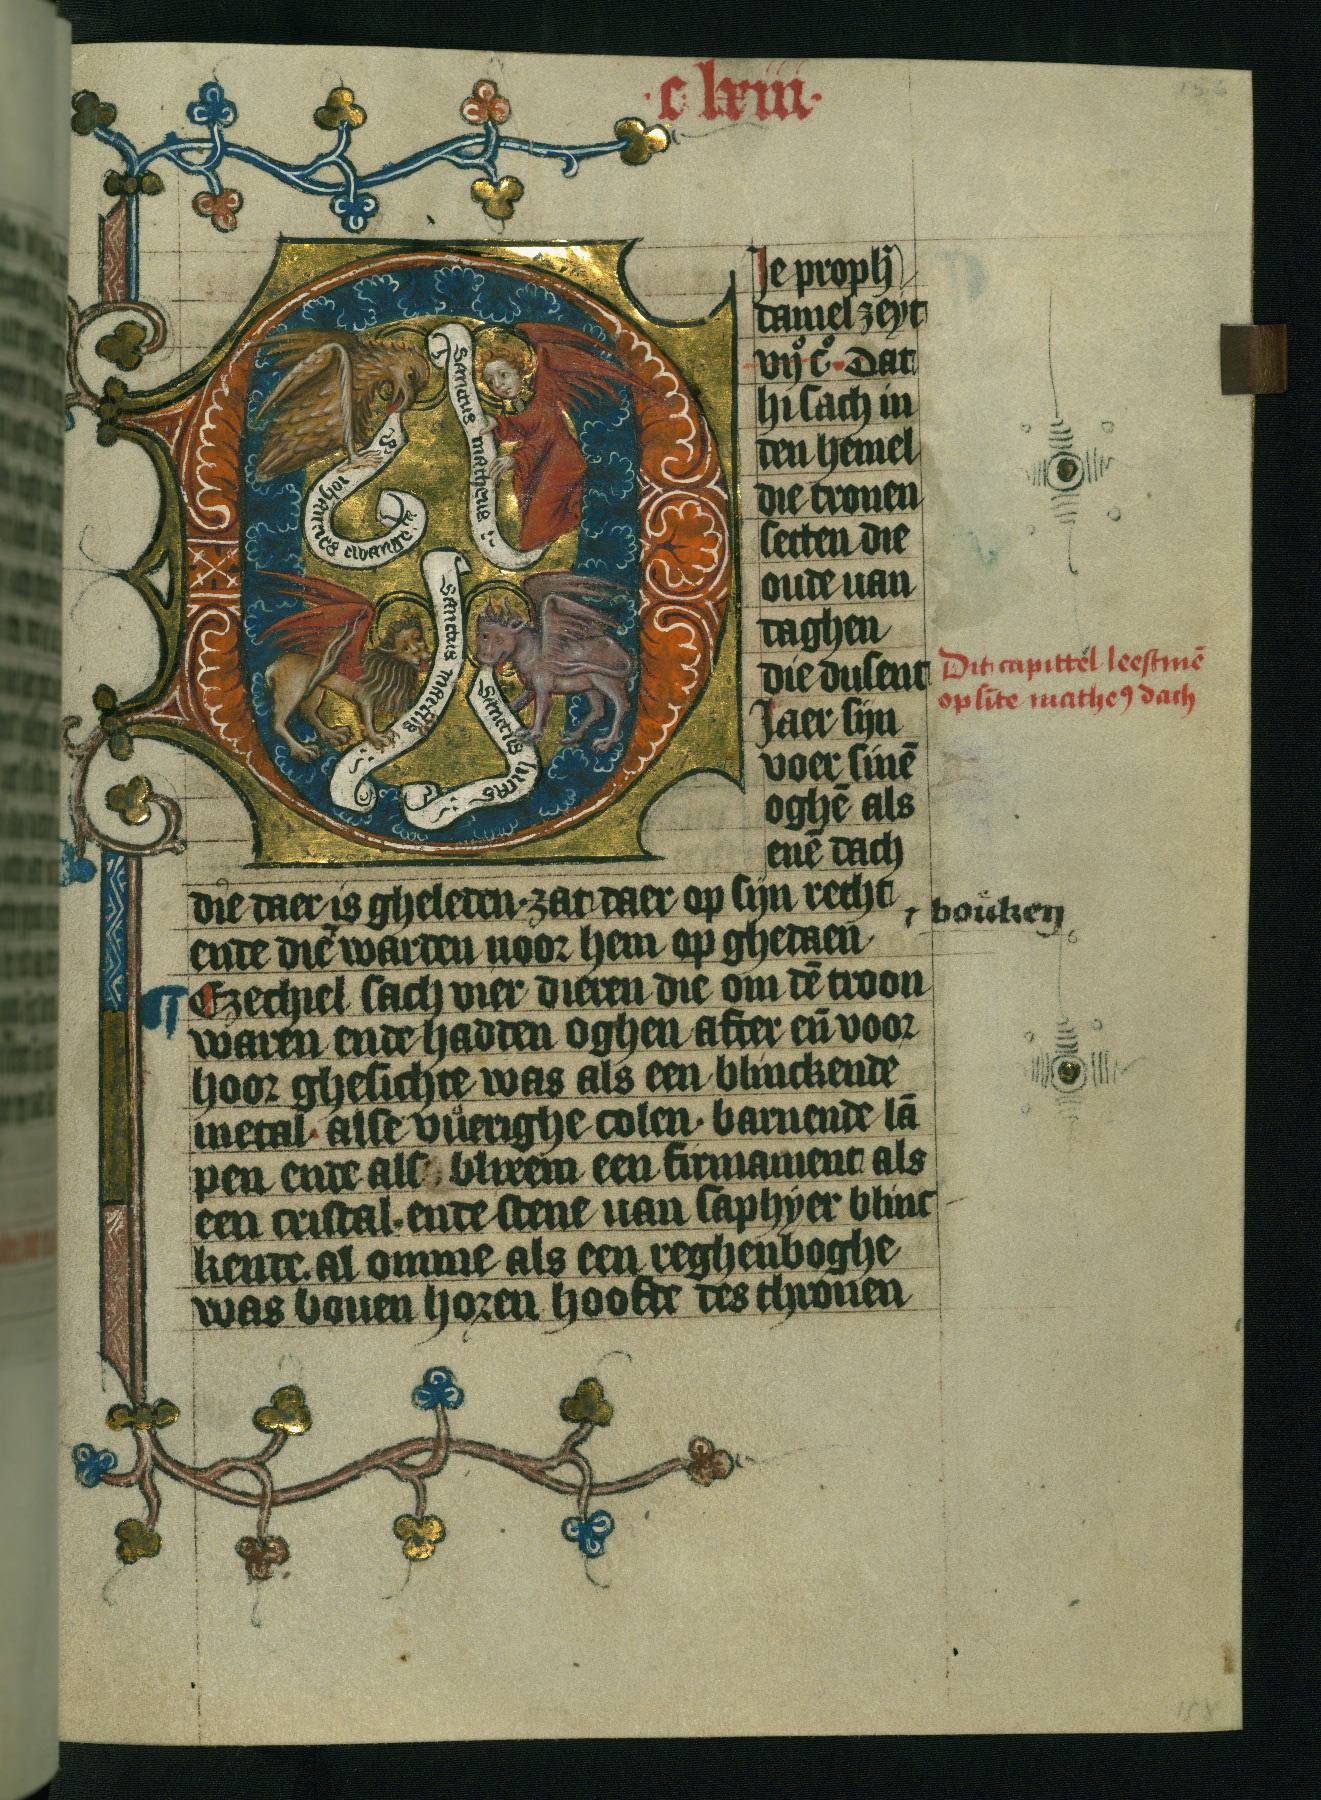 ·c lxiiii·
Je proph̄
daniel zeyt
vij c̊. Dat
hi sach in
den hemel
die tronen
setten die
oude uan
daghen
die dusent
Jaer sijn
voer sinē
oghē als
enē dach
die daer is gheleden. zat daer op sijn recht
ende die warden uoor hem op ghedaen
⁊ bouken
¶ Ezechiel sach vier dieren die om dē troon
waren ende hadden oghen after eñ voor
hoor ghesichte was als een blinckende
metal. alse vůerighe colen. barnende lā
pen ende als blixem een firmament als
een cristal. ende stene uan saphyer blinc
kende. al omme als een reghenboghe
was bouen horen hoofde des thronen
Dit capittel leestmē
op sīte matheꝰ dach
s iohannes ewange
sanctus matheus
sanctus marcus
sanctus lucas
158